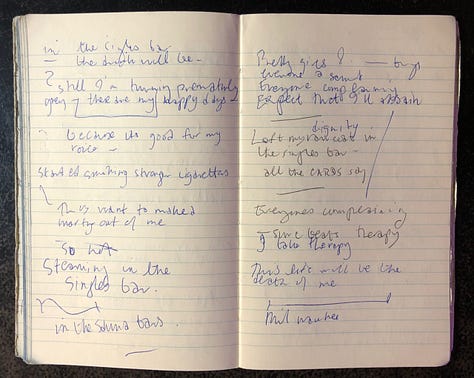 in the singles bar
the drinks will be -
?
still I'm turning prematurely
grey - these are my happy days -
because its good for my
voice -
started smoking stronger cigarettes
This want to make a
out of me
So hot
Steaming in the
Singles bar.
in the sauna bars.
Pretty girls ? — boys
everyone a
Everyone complaining
expect that I'll
dignity
Left my raincoat in
the singles bar -
all the CARDS say
Everyones complaining
- Sure beats therapy
I take therapy
This life will be the
death of me
Milwaukee